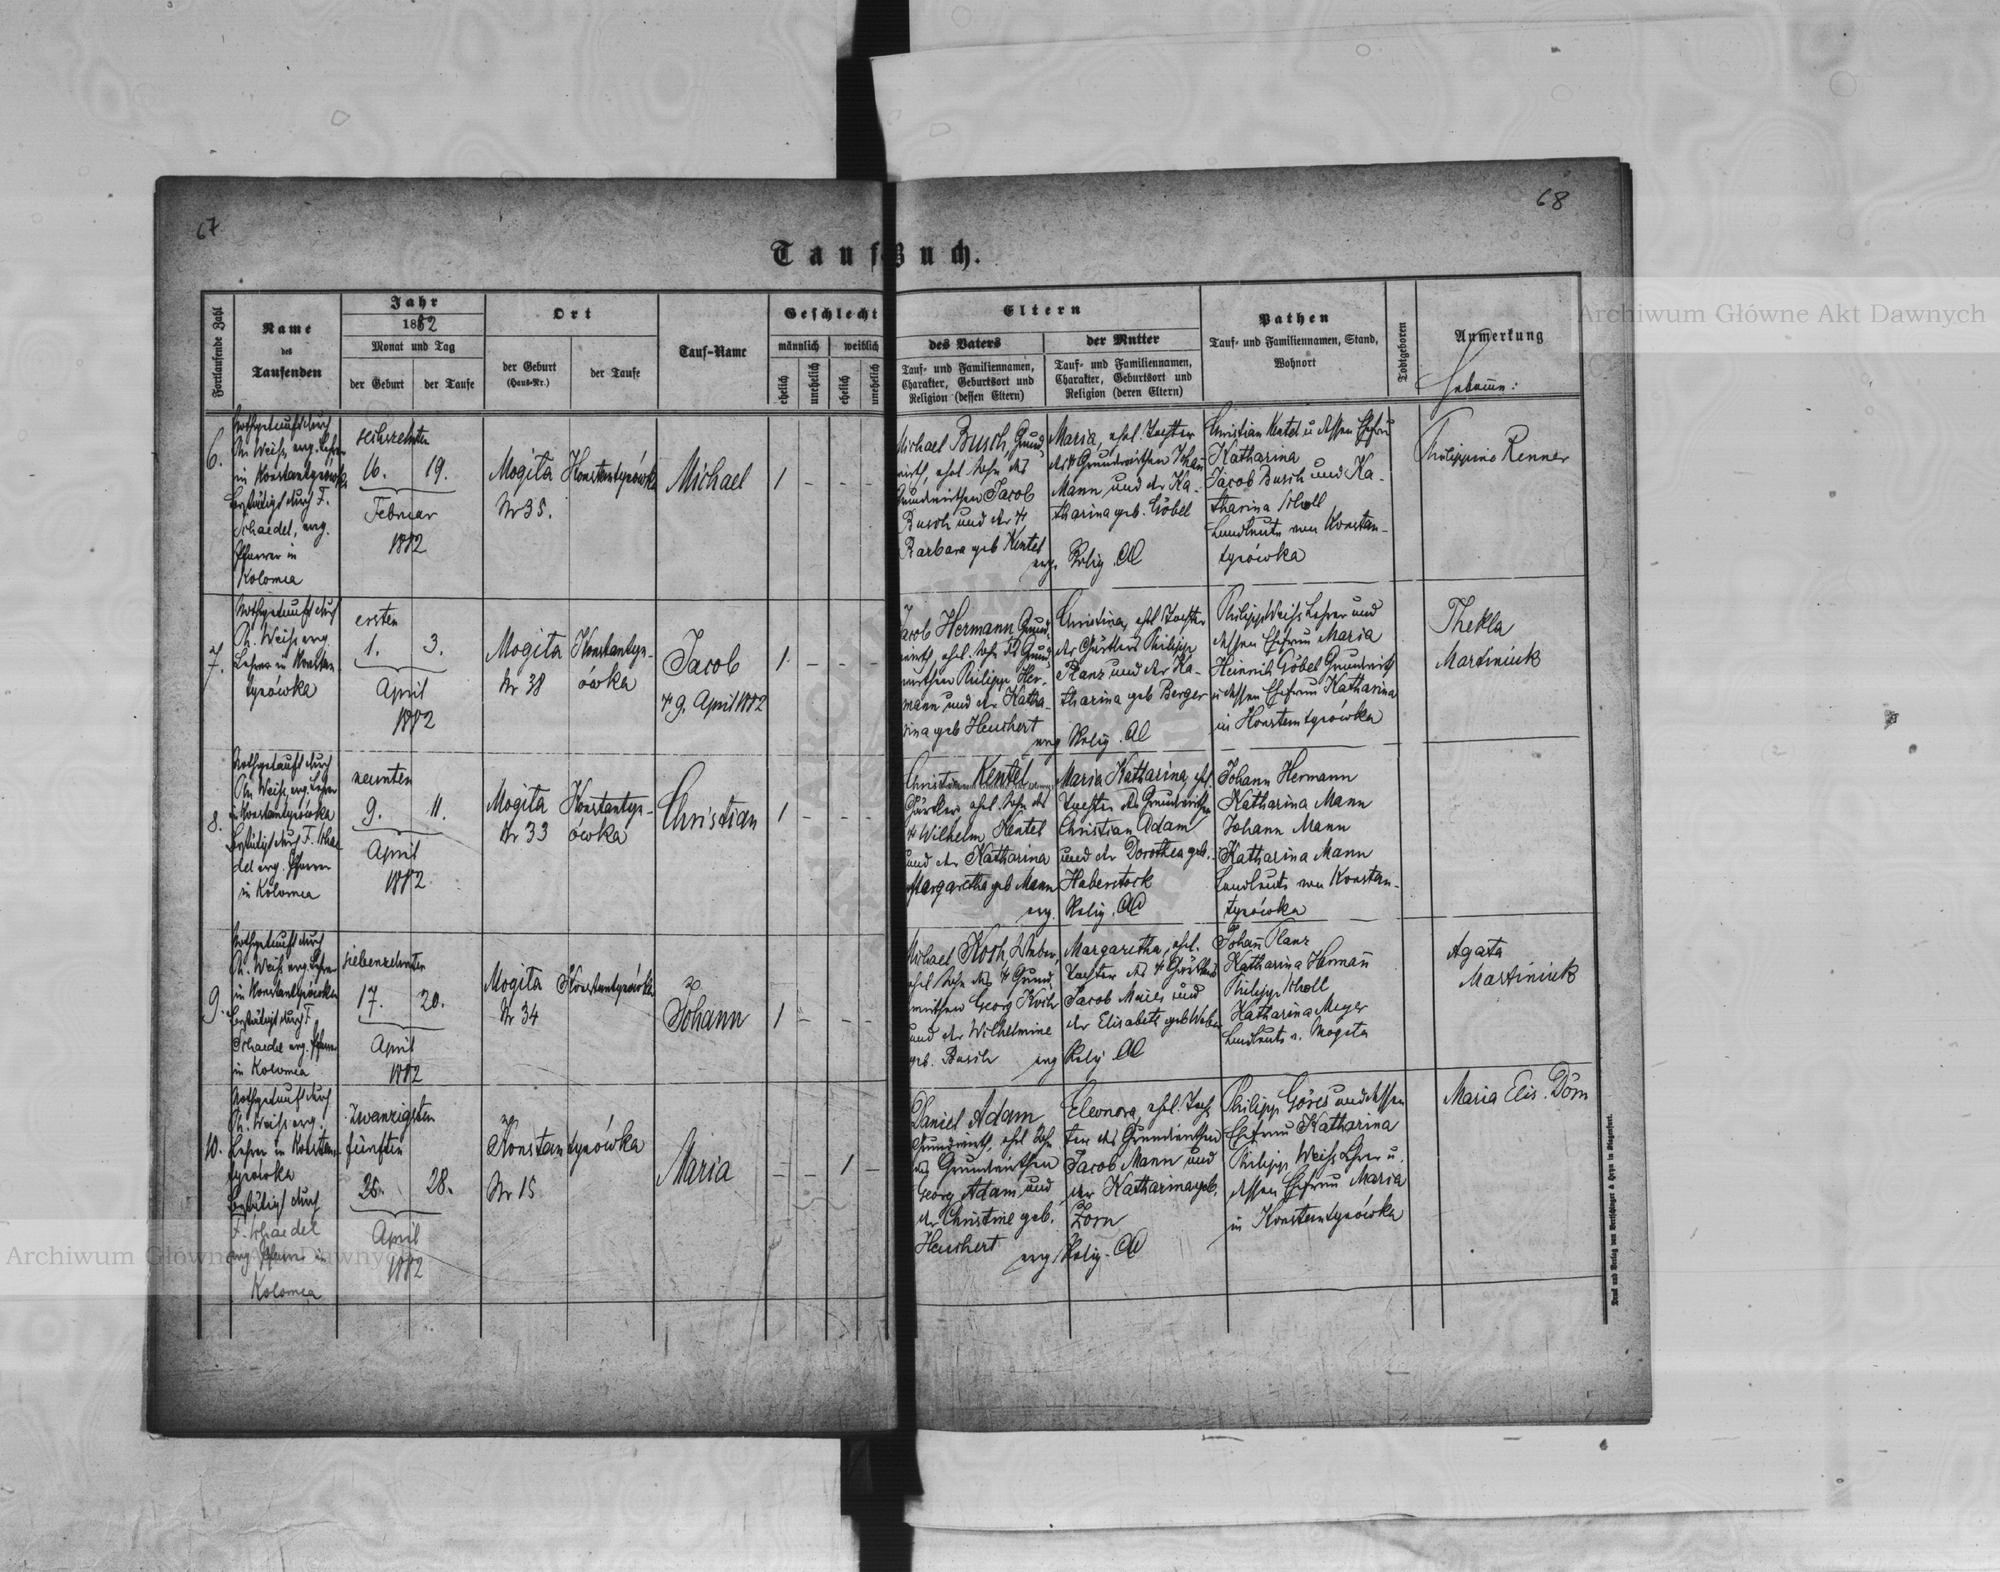 67
68
Tauf-Buch.
Archiwum Główne Akt Dawnych
Fortlaufende Zahl
Name
des
Taufenden
Jahr
1882
Monat und Tag
der Geburt
der Taufe
Ort
der Geburt
(Haus-Nr.)
der Taufe
Tauf-Name
Geschlecht
männlich
weiblich
ehelich
unehelich
ehelich
unehelich
Eltern
des Vaters
Tauf- und Familiennamen,
Charakter, Geburtsort und
Religion (dessen Eltern)
der Mutter
Tauf- und Familiennamen,
Charakter, Geburtsort und
Religion (deren Eltern)
Pathen
Tauf- und Familiennamen, Stand,
Wohnort
Todtgeboren
Anmerkung
Hebamme:
6.
Nothgetauft durch
Ph. Weiss, evg. Lehrer
in Konstantyówka
Bestätigt durch F.
Schaedel, evg.
Pfarrer in
Kolomea
sechszehnten
16. 19.
Februar
1882
Mogita
Nr 35.
Konstantyówka
Michael
1 - - -
Michael Busch, Grund
wirth, ehel. Sohn des
Grundwirthen Jacob
Busch und der †
Barbara geb Kentel
Maria, ehel. Tochter
des † Grundwirthen Johan
Mann, und der Ka-
tharina geb. Göbel
evg. Relig. AC
Christian Kentel u dessen Ehefrau
Katharina
Jacob Busch und Ka-
tharina Scholl
Landleute von Konstan-
tyówka
Philippine Renner
7.
Nothgetauft durch
Ph. Weiss evg
Lehrer in Konstan
tyówka
ersten
1. 3.
April
1882
Mogita
Nr 38
Konstanty-
ówka
Jacob
† 9. April 1882
1 - - -
Jacob Hermann Grund
wirth, ehel. Sohn des Grund
wirthen Philipp Her-
mann und der Katha-
rina geb Heuchert
Christina, ehel Tochter
des Gärtlers Philipp
Planz und der Ka-
tharina geb Berger
evg Relig. AC
Philipp Weiss Lehrer und
dessen Ehefrau Maria
Heinrich Göbel Grundwirth
u dessen Ehefrau Katharina
in Konstantyówka
Thekla
Martiniuk
8.
Nothgetauft durch
Ph. Weiss, evg. Lehrer
in Konstantyówka
Bestätigt durch F. Schae
del evg. Pfarrer
in Kolomea
neunten
9. 11.
April
1882
Mogita
Nr 33
Konstanty-
ówka
Christian
1 - - -
Christian Kentel
Gärtler, ehel. Sohn des
† Wilhelm Kentel
und der Katharina
Margaretha geb Mann
Maria Katharina, ehel.
Tochter des Grundwirthen
Christian Adam
und der Dorothea geb.
Haberstock
evg. Relig. AC
Johann Hermann
Katharina Mann
Johann Mann
Katharina Mann
Landleute von Konstan-
tyówka
9.
Nothgetauft durch
Ph. Weiss evg. Lehrer
in Konstantyówka
Bestätigt durch F.
Schaedel evg. Pfarrer
in Kolomea
siebenzehnten
17. 20.
April
1882
Mogita
Nr 34
Konstantyówka
Johann
1 - - -
Michael Koch, Weber,
ehel Sohn des † Grund
wirthen Georg Koch
und der Wilhelmine
geb. Busch
Margaretha, ehel.
Tochter des † Gärtlers
Jacob Maier und
der Elisabeth geb Weber
evg Relig AC
Johan̄ Planz
Katharina Herman̄
Philipp Scholl
Katharina Meyer
Landleute v. Mogita
Agata
Martiniuk
10.
Nothgetauft durch
Ph. Weiss evg.
Lehrer in Konstan
tyówka
Bestätigt durch
F. Schaedel
evg Pfarrer in
Kolomea
zwanzigsten
fünften
25. 28.
April
1882
Konstantyówka
Nr 15
Maria
- - 1 -
Daniel Adam
Grundwirth, ehel Sohn
des Grundwirthen
Georg Adam, und
der Christine geb.
Heuchert
Eleonora, ehel. Toch
ter des Grundwirthen
Jacob Mann und
der Katharina geb.
Zorn
evg Relig. AC
Philipp Göres und dessen
Ehefrau Katharina
Philipp Weiss Lehrer u.
dessen Ehefrau Maria
in Konstantyówka
Maria Elis. Dörn
Archiwum Główne Akt Dawnych